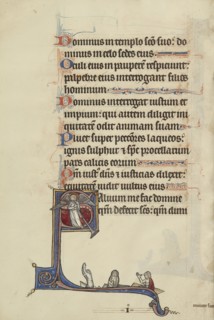 Dominus in templo sc̄o suo: do
minus in celo sedes eius
Oculi eius in pauperē respiciunt:
palpebre eius interrogant filios
hominum
Dominus interrogat iustum et
impium: qui autem diligit ini
quitatē odit animam suam
Pluet super peccatores laqueos:
ignis sulphur et sp̄c procellarum
pars calicis eorum
Qm̄ iustus dn̄s et iusticias dilexit:
equitatē uidit uultus eius
Saluum me fac domine
qm̄ defecit sc̄s: qm̄ dimi